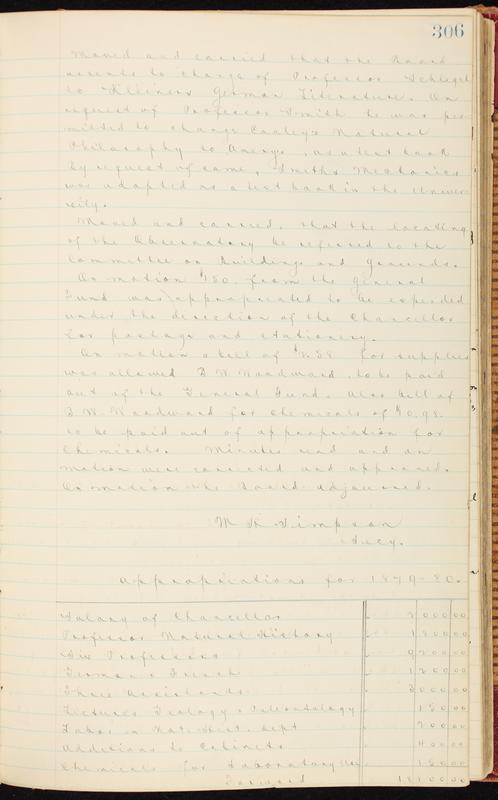 306
Moved and carried that the Board
assents to change of Professor Schlegel
to Kleiners German Literature. On
request of Professor Smith he was per-
mitted to change Cooley's Natural
Philosophy to Avery's, as a text book
By request of same, Smiths Mechanics
was adopted as a text book in the Univer-
sity.
Moved and carried, that the locating
of the Observatory be referred to the
Committee on Buildings and Grounds.
On motion $150. from the General
Fund was appropriated to be expended
under the direction of the Chancellor
for postage and stationery.
On motion a bill of for supplies
was allowed B. W. Woodward, to be paid
out of the General Fund. Also bill of
B. W. Woodward for chemicals of
to be paid out of appropriation for
Chemicals. Minutes read and on
motion were corrected and approved.
On motion the Board adjourned.
Timpson
Secy.
Appropriations for 1879-80.
Salary of Chancellor 2000 00
Professor Natural History 1800 00
Six Professors 9200 00
German & French 1200 00
Three Assistants 3000 00
Lectures Geology & Paleontology 150 00
Labor in Nat. Hist. Dept 200 00
Additions to Cabinets 400 00
Chemicals for Laboratory Use 150 00
Forward 18100 00